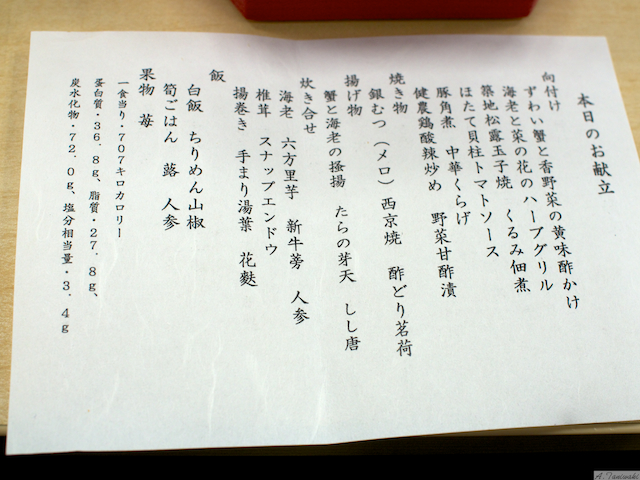 本日のお献立
向付け
ずわい蟹と香野菜の黄味酢かけ
海老と菜の花のハーブグリル
築地松露玉子焼　くるみ佃煮
ほたて貝柱トマトソース
豚角煮　中華くらげ
健農鶏酸辣炒め　野菜甘酢漬
焼き物
銀むつ（メロ）西京焼　酢どり茗荷
揚げ物
蟹と海老の掻揚　たらの芽天　しし唐
炊き合せ
海老　六方里芋　新牛蒡　人参
椎茸　スナップエンドウ
揚巻き　手まり湯葉　花麩
飯
白飯　ちりめん山椒
筍ごはん　蕗　人参
果物　苺
一食当り・707キロカロリー
蛋白質・36.8g、脂質・27.8g、
炭水化物・72.0g、塩分相当量・3.4g